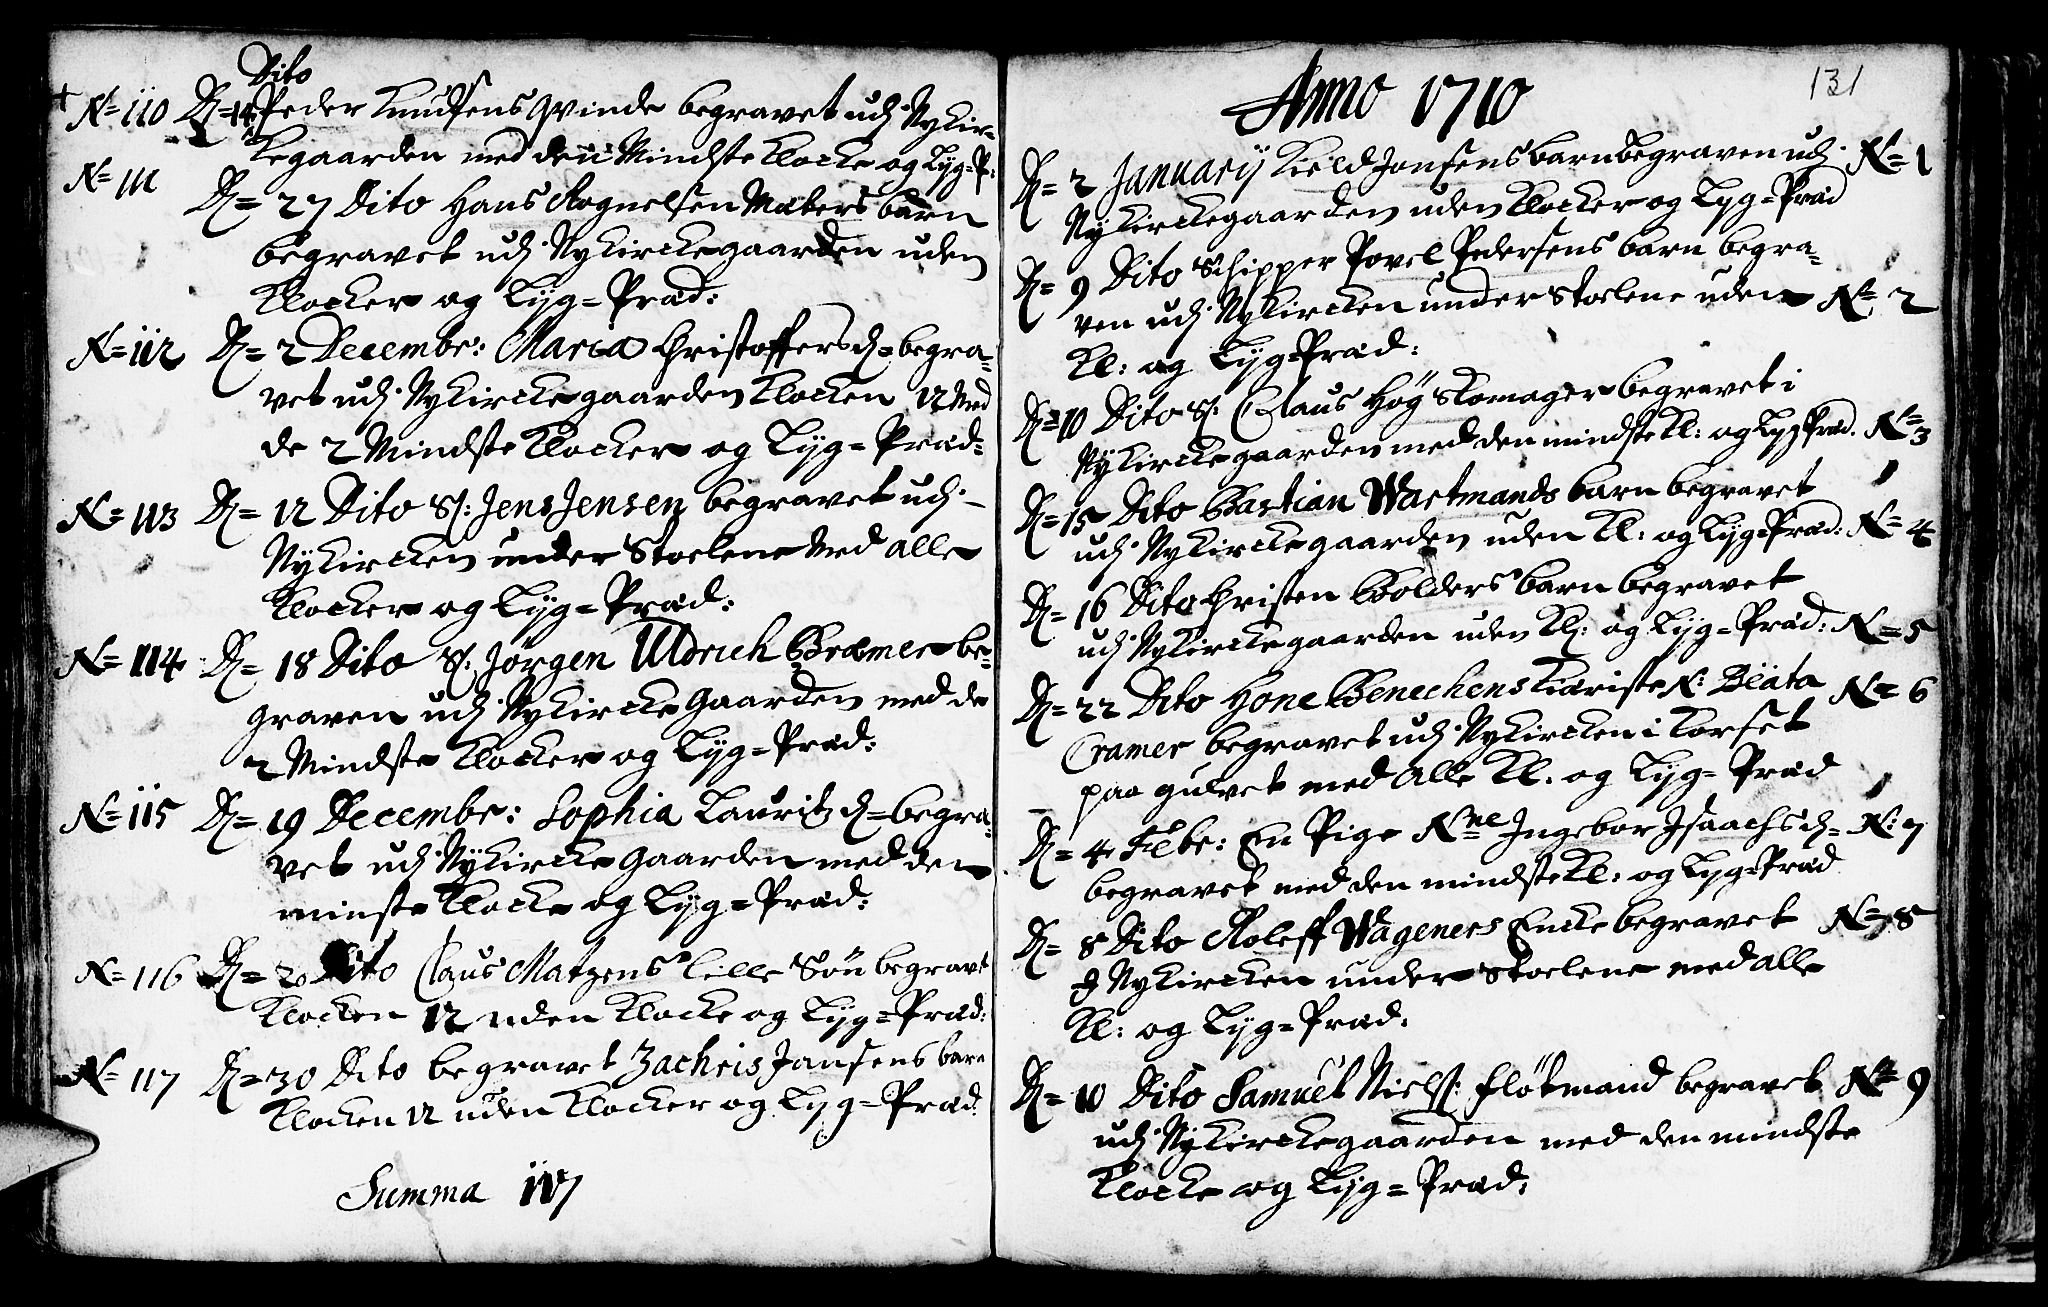 Dito
+ N= 110 D= 14 Peder Knudsens qvinde begravet udj Nykir-
kegaarden med den Mindste Klocke og Lyg=P:
N= 111
D= 27 Dito Hans Rognelsen Mabers barn
begravet udj Nykirckegaarden uden
Klocker og Lyg=Præd:
N= 112 D= 2 Decembr: Maria Christoffersd= begra-
vet udj Nykirckegaarden Klocken 12 Med
de 2 Mindste Klocker og Lyg=Præd:
N= 113 D= 12 Dito Sl: Jens Jensen begravet udj
Nykircken under Stoelene Med alle
Klocker og Lyg=Præd:
N= 114 D= 18 Dito Sl: Jørgen Uldrich Bræmer be-
graven udj Nykircke Gaarden med de
2 Mindste Klocker og Lyg=Præd:
N= 115 D= 19 Decembr: Sophia Lauritzd= begra-
vet udj Nykircke Gaarden med den
minste Klocke og Lyg=Præd:
N= 116 D= 20 Dito Claus Matzens lille Søn begravet
Klocken 12 uden Klocke og Lyg=Præd:
N= 117 D= 30 Dito begravet Zachris Jansens barn
Klocken 12 uden Klocker og Lyg=Præd
Summa 117
131
Anno 1710
D= 2 Januarij Kield Jonsens barn begraven udj N= 1
Nykirckegaarden uden Klocker og Lyg=Præd
D= 9 Dito Schipper Povel Pedersens barn begra-
ven udj Nykircken under Stoelene uden N= 2
Kl: og Lyg=Præd:
D= 10 Dito Sl: Claus Høy Skomager begravet i
Nykirckegaarden med den mindste Kl: og Lyg Præd. N= 3
D= 15 Dito Bastian Wartmands barn begravet
udj Nykirckegaarden uden Kl: og Lyg=Præd: N= 4
D= 16 Dito Christen Bolders barn begravet
udj Nykirckegaarden uden Kl: og Lyg=Præd: N= 5
D= 22 Dito Hone Benechens Kiæriste N: Beata N= 6
Cramer begravet udj Nykircken i Korset
paa gulvet med Alle Kl: og Lyg=Præd
D= 4 Febr: En Pige Nne Ingebor Isaachsd= N: 7
begravet med den mindste Kl: og Lyg=Præd
D= 8 Dito Roleff Wageners Encke begravet N= 8
I Nykircken under Stoelene med alle
Kl: og Lyg=Præd:
D= 10 Dito Samuel Nielss: Fløtmand begravet N= 9
udj Nykirckegaarden med den mindste
Klocke og Lyg=Præd: